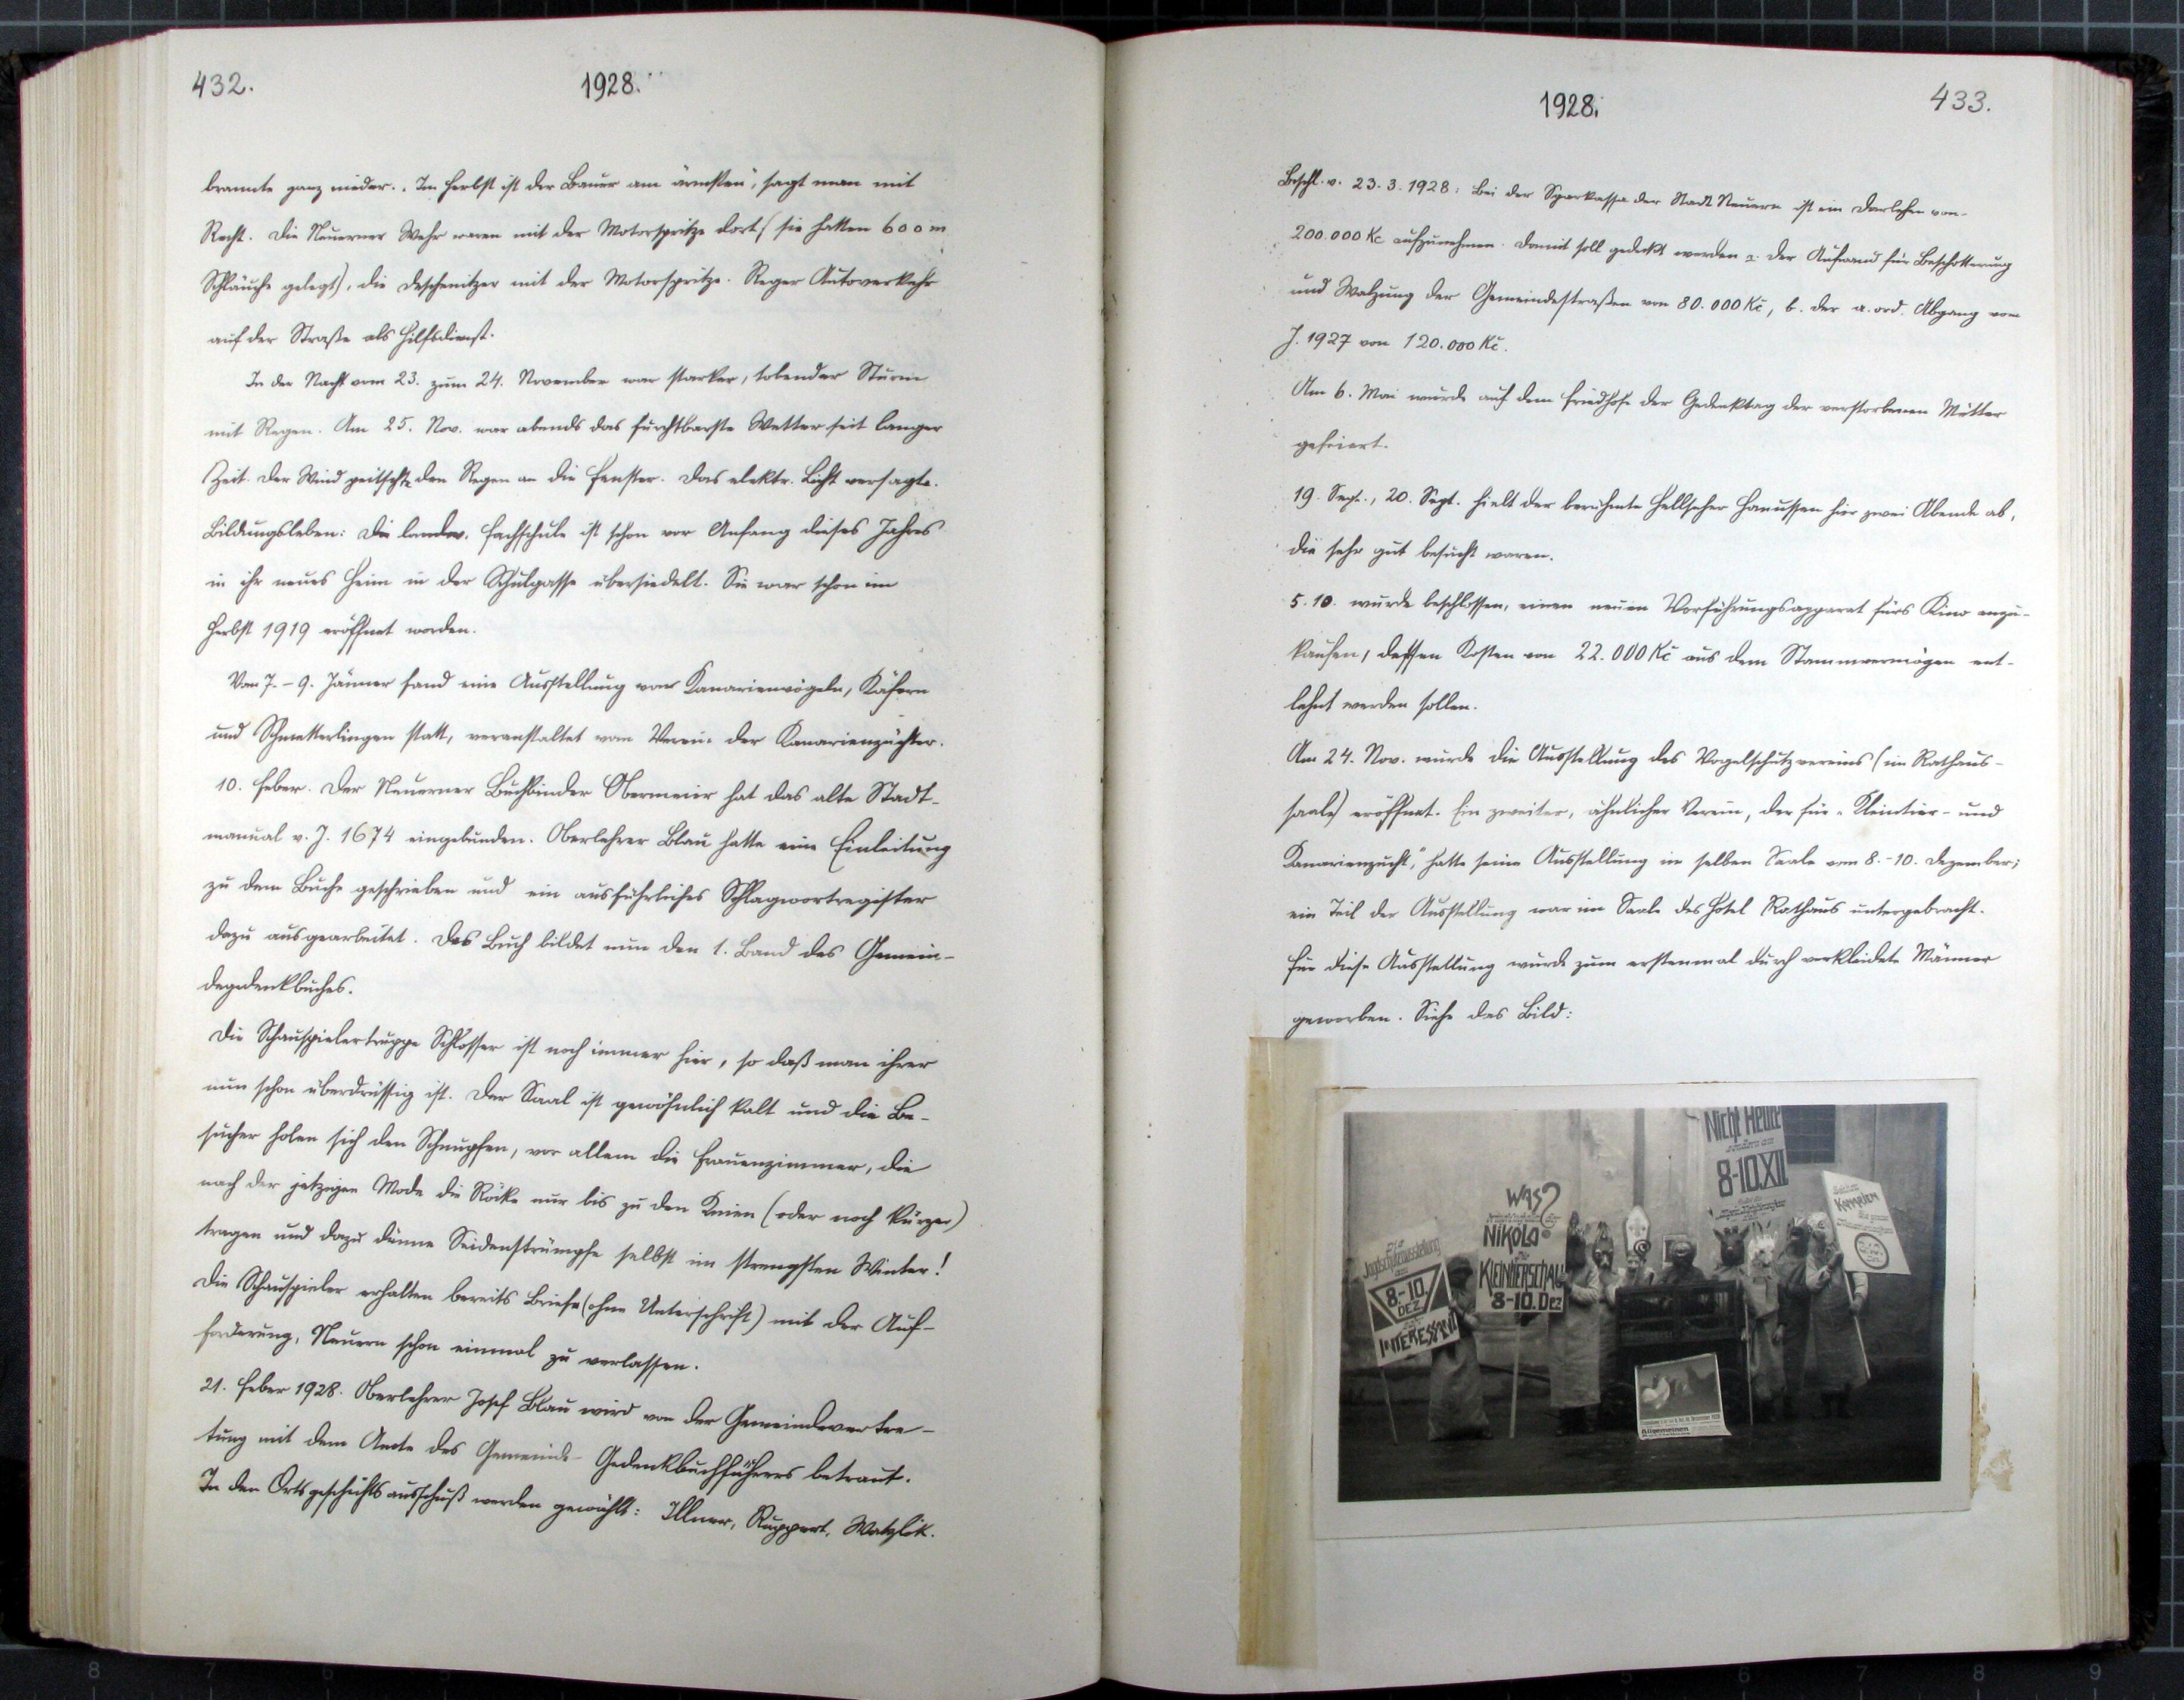 432.
1928.
brannte ganz nieder. „Im Herbst ist der Bauer am ärmsten“, sagt man mit
Recht. Die Neuerner Wehr waren mit der Motorspritze dort (sie hatten 600 m
Schläuche gelegt), die Deschenitzer mit der Motorspritze. Reger Autoverkehr
auf der Straße als Hilfsdienst.
In der Nacht vom 23. zum 24. November war starker, tobender Sturm
mit Regen. Am 25. Nov. war abends das furchtbarste Wetter seit langer
Zeit. Der Wind peitschte den Regen an die Fenster. Das elektr. Licht versagte.
Bildungsleben: Die landw. Fachschule ist schon vor Anfang dieses Jahres
in ihr neues Heim in der Schulgasse übersiedelt. Sie war schon im
Herbst 1919 eröffnet worden.
Vom 7. – 9. Jänner fand eine Ausstellung von Kanarienvögeln, Käfern
und Schmetterlingen statt, veranstaltet vom Verein der Kanarienzüchter.
10. Feber. Der Neuerner Buchbinder Obermeier hat das alte Stadt-
manual v. J. 1674 eingebunden. Oberlehrer Blau hatte eine Einleitung
zu dem Buche geschrieben und ein ausführliches Schlagwortregister
dazu ausgearbeitet. Das Buch bildet nun den 1. Band des Gemein-
degedenkbuches.
Die Schauspielertruppe Schlosser ist noch immer hier, so daß man ihrer
nun schon überdrüssig ist. Der Saal ist gewöhnlich kalt und die Be-
sucher holen sich den Schnupfen, vor allem die Frauenzimmer, die
nach der jetzigen Mode die Röcke nur bis zu den Knien (oder noch kürzer)
tragen und dazu dünne Seidenstrümpfe selbst im strengsten Winter!
Die Schauspieler erhalten bereits Briefe (ohne Unterschrift) mit der Auf-
forderung, Neuern schon einmal zu verlassen.
21. Feber 1928. Oberlehrer Josef Blau wird von der Gemeindevertre-
tung mit dem Amte des Gemeinde-Gedenkbuchführers betraut.
In den Ortsgeschichtsausschuß werden gewählt: Illner, Ruppert, Watzlik.
1928.
433.
Beschl. v. 23.3.1928: Bei der Sparkassa der Stadt Neuern ist ein Darlehen von
200.000 Kc aufzunehmen. Damit soll gedeckt werden a. der Aufwand für Beschotterung
und Walzung der Gemeindestraßen von 80.000 Kč, b. der a. ord. Abgang vom
J. 1927 von 120.000 Kč.
Am 6. Mai wurde auf dem Friedhofe der Gedenktag der verstorbenen Mütter
gefeiert.
19. Sept., 20. Sept. hielt der berühmte Hellseher Hanussen hier zwei Abende ab,
die sehr gut besucht waren.
5.10. wurde beschlossen, einen neuen Vorführungsapparat fürs Kino anzu-
kaufen, dessen Kosten von 22.000 Kč aus dem Stammvermögen ent-
lehnt werden sollen.
Am 24. Nov. wurde die Ausstellung des Vogelschutzvereins (im Rathaus-
saale) eröffnet. Ein zweiter, ähnlicher Verein, der für „Kleintier- und
Kanarienzucht“, hatte seine Ausstellung im selben Saale vom 8.-10. Dezember;
ein Teil der Ausstellung war im Saale des Hotel Rathaus untergebracht.
Für diese Ausstellung wurde zum erstenmal durch verkleidete Männer
geworben. Siehe das Bild:
Nicht Heute
8-10.XII
WAS?
NIKOLO
KLEINTIERSCHAU
8-10. DEZ
8.-10.
DEZ.
INTERESSANT
KANARIEN
Allgemeinen